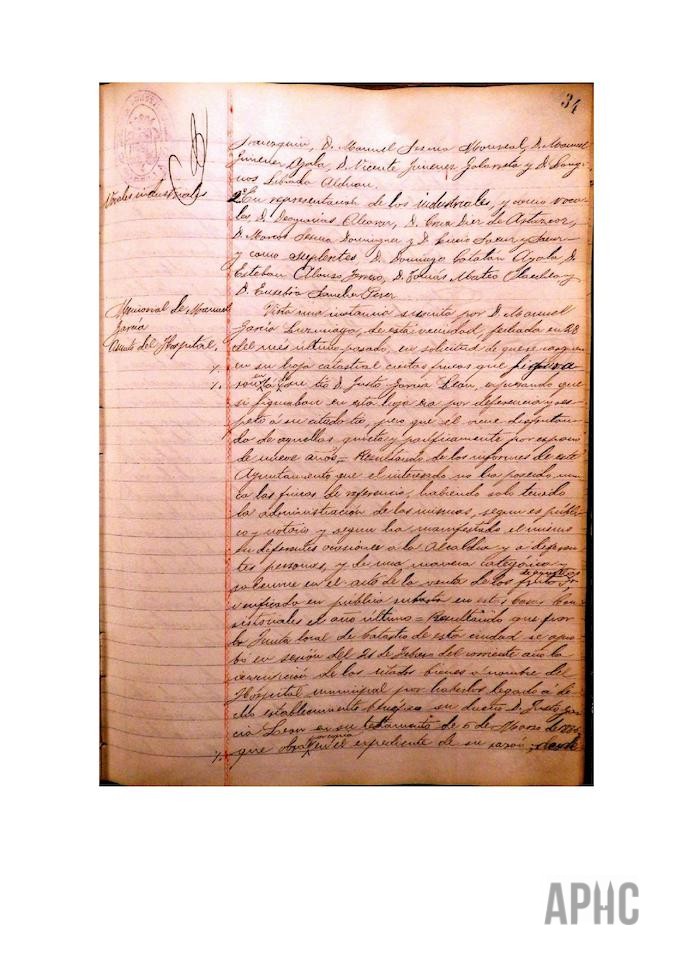 34
D. Manuel Sesma Monreal, D. Manuel
Jimenez Ayala, D. Vicente Jimenez Zalavieta y D.
Librada Aldrian.
Vocales industriales
2º En representación de los industriales, y como voca-
les D. Deogracias Alcazar, D. Cruz Diez de Antuñor,
D. Marcos Sesma Dominguez y D. Eusebio
y como suplentes D. Domingo Catalán Ayala, D.
Esteban Alonso D. Tomás Mateo y
D. Eusebio Sanchez Perez
Memorial de Manuel
García
Asunto del Hospital.
Vista una instancia suscrita por D. Manuel
García de esta vecindad, fechada en 28
del mes último pasado, en solicitud de que se
en su hoja catastral ciertas fincas que figura
ron en la de su tio D. Justo García León, expresando que
si figuraban en esta hoja era por deferencia y res-
peto á su citado tio, pero que él viene disfrutan-
do de aquellas quieta y pacificamente por espacio
de nueve años = Resultando de los informes de este
Ayuntamiento que el interesado no ha poseido nun-
ca las fincas de referencia, habiendo solo tenido
la administración de las mismas, segun es públi-
co y notorio y segun ha manifestado el mismo
en diferentes ocasiones a la Alcaldia y á diferen-
tes personas, y de una manera categórica y
solemne en el acto de la venta de los frutos de aquellas
verificado en pública subasta en estas Casas Con-
sistoriales el año último = Resultando que por
la Junta local de Catastro de esta ciudad se apro-
bó en sesión del 21 de Febrero del corriente año la
inscripción de los citados bienes á nombre del
Hospital municipal por haberlos legado a di-
cho establecimiento benéfico su dueño D. Justo Gar-
cia Leon en su testamento de 5 de Marzo de
que obra en copia en el expediente de su razón, donde
APHC